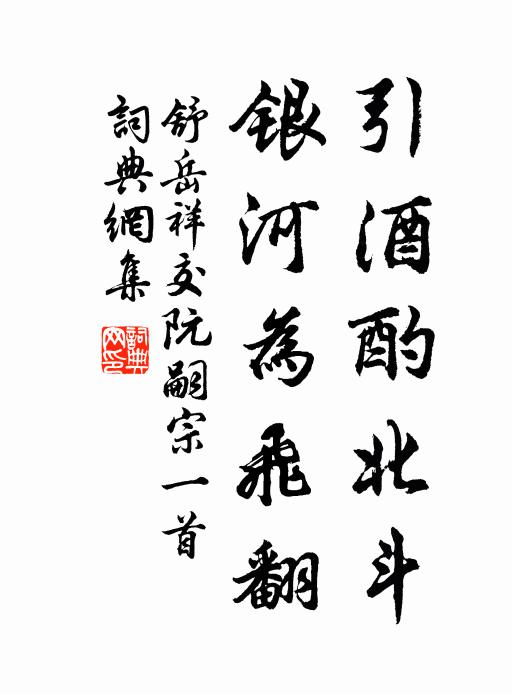 引酒酌北斗
銀河為飛翻
舒岳祥交阮嗣宗一首
詞典網集
詞典网印